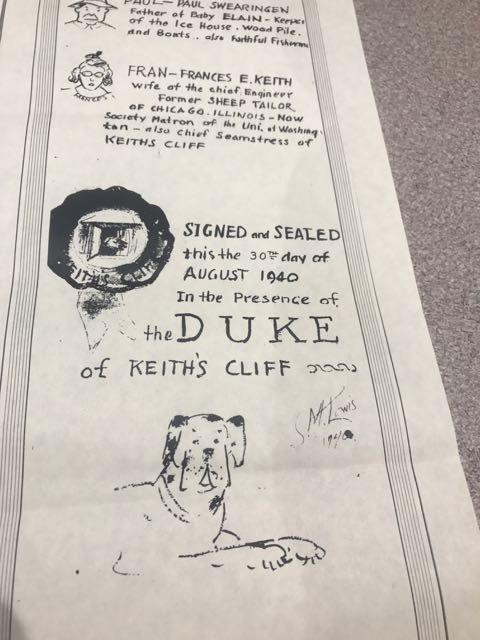 PAUL — PAUL SWEARINGEN
Father of Baby ELAIN - Keeper
of the Ice House. Wood Pile.
and Boats.. also faithful Fisherman
FRAN — FRANCES E. KEITH
wife of the chief Engineer
Former SHEEP TAILOR
OF CHICAGO. ILLINOIS - NOW
Society Matron of the Uni. of Washing-
ton - also Chief Seamstress of
KEITHS CLIFF
FRANCES
KEITHS CLIFF
SIGNED and SEALED
this the 30TH day of
AUGUST 1940
In the Presence of
the DUKE
of KEITH'S CLIFF
S. M. Lewis
1940